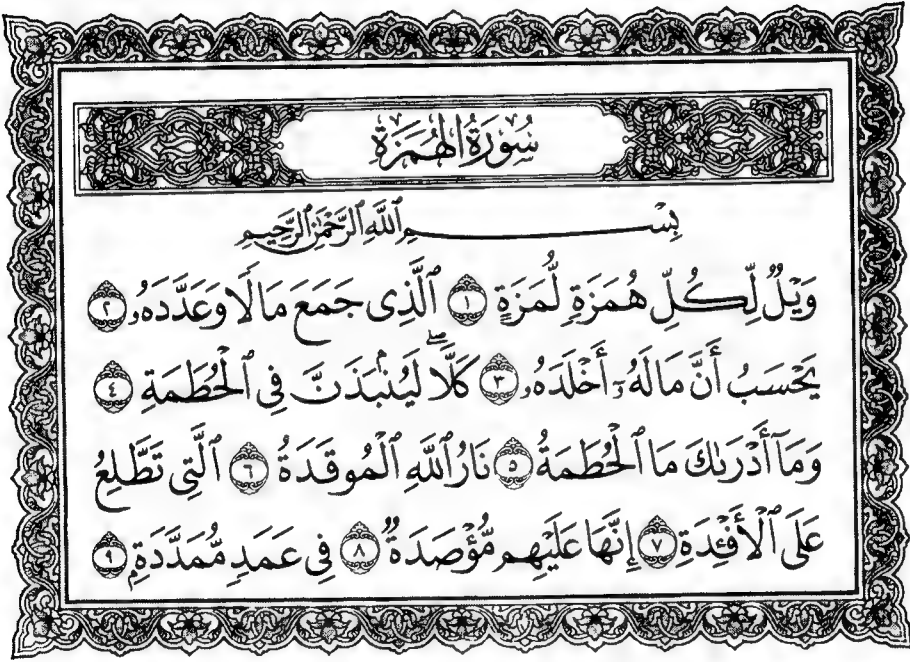 سُورَةُ الْهُمَزَةِ
بِسْمِ ٱللَّهِ ٱلرَّحْمَٰنِ ٱلرَّحِيمِ
وَيْلٌ لِّكُلِّ هُمَزَةٍ لُّمَزَةٍ ١ ٱلَّذِى جَمَعَ مَالًا وَعَدَّدَهُۥ ٢
يَحْسَبُ أَنَّ مَالَهُۥٓ أَخْلَدَهُۥ ٣ كَلَّا ۖ لَيُنۢبَذَنَّ فِى ٱلْحُطَمَةِ ٤
وَمَآ أَدْرَىٰكَ مَا ٱلْحُطَمَةُ ٥ نَارُ ٱللَّهِ ٱلْمُوقَدَةُ ٦ ٱلَّتِى تَطَّلِعُ
عَلَى ٱلْأَفْـِٔدَةِ ٧ إِنَّهَا عَلَيْهِم مُّؤْصَدَةٌ ٨ فِى عَمَدٍ مُّمَدَّدَةٍۭ ٩